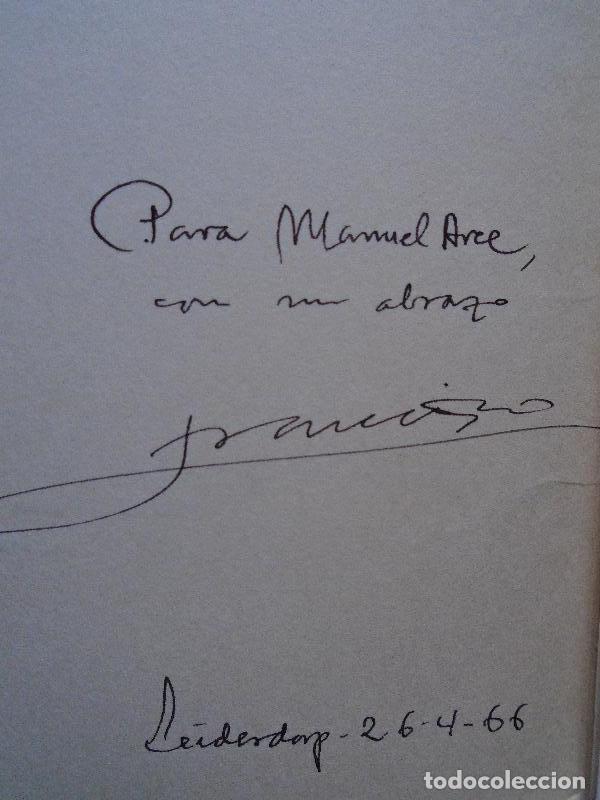 Para Manuel Arce,
con un abrazo
Francisco
Leiderdorp - 26-4-66
todocoleccion